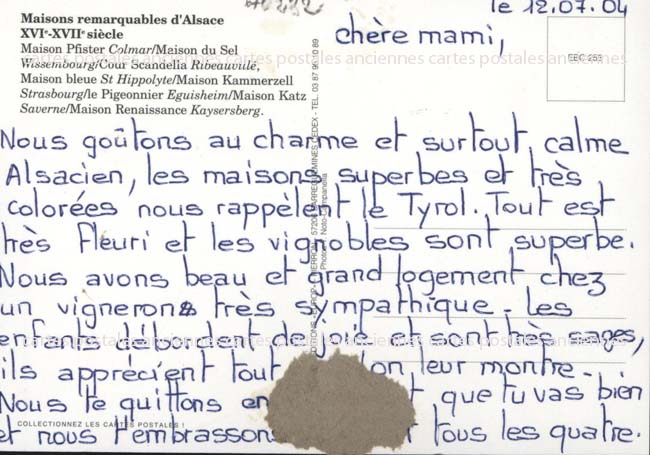 le 12.07.04
Maisons remarquables d'Alsace
XVIe-XVIIe siècle
Maison Pfister Colmar/Maison du Sel
Wissembourg/Cour Scandella Ribeauvillé,
Maison bleue St Hippolyte/Maison Kammerzell
Strasbourg/le Pigeonnier Eguisheim/Maison Katz
Saverne/Maison Renaissance Kaysersberg.
chère mami,
cartes postales anciennes cartes postales anciennes cartes postales anciennes
Nous goûtons au charme et surtout, calme
Alsacien, les maisons superbes et très
colorées nous rappèlent le Tyrol. Tout est
très fleuri et les vignobles sont superbe.
Nous avons beau et grand logement chez
un vignerons très sympathique. Les
enfants débordent de joie et sont très sages,
ils apprécient tout on leur montre.
Nous te quittons en que tu vas bien
et nous t'embrassons tous les quatre.
COLLECTIONNEZ LES CARTES POSTALES !
cartes postales anciennes cartes postales anciennes cartes postales anciennes